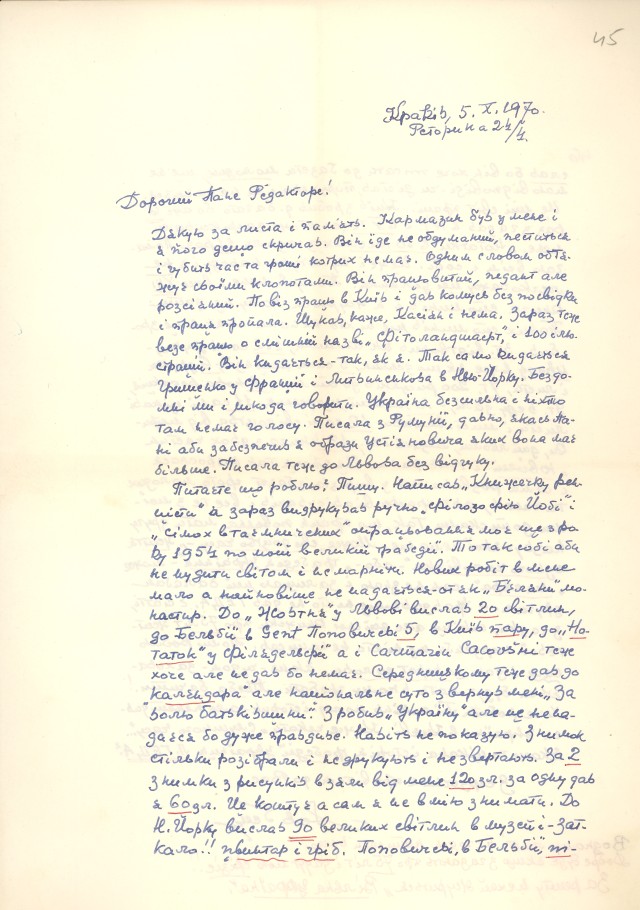 45
Краків, 5. X. 1970.
Реторика 24/4.
Дорогий Пане Редакторе!
Дякую за листа і память. Кармазин був у мене і
я його дещо скричав. Він їде не обдуманий, пеститься
і губить час та гроші котрих немає. Одним словом обтя-
жує своїми клопотами. Він працьовитий, педант але
розсіяний. Повіз працю в Київ і дав комусь без посвідки
і праця пропала. Шукав, каже, Касіян і нема. Зараз теж
везе працю о смішній назві „Фітоландшафт", і 100 ілю-
страцій. Він кидається - так, як я. Так само кидається
Грищенко у Франції і Литвинськова в Ню Йорку. Бездо-
мні ми і шкода говорити. Україна безсильна і ніхто
там немає голосу. Писала з Румунії, давно, якась па-
ні аби забезпечив я образи Устіяновича яких вона має
більше. Писала теж до Львова без відгуку.
Питаєте що роблю? Пишу. Написав „Книжечку
" й зараз видрукував ручно „філозофію Йобі" і
„Сімох втаємничених" опрацьовання моє ще з ро-
ку 1954 по моїй великій трагедії. То так собі аби
не нудити світом і не марніти. Нових робіт в мене
мало а найновіше не надається от як „Беляни" мо-
настир. До „Жовтня" у Львові вислав 20 світлин,
до Бельгії в Gent Поповичеві 5, в Київ пару, до „Но-
таток" у Філядельфії а і Сачтагіи Сасоуні теж
хоче але не дав бо немає. Середницькому теж дав до
календара" але національне суто звернув мені „За
волю батьківщини". Зробив „Україну" але ще не на-
дається бо дуже правдиве. Навіть не показую. Знимок
стільки розібрали і не друкують і не звертають. За 2
знимки з рисунків взяли від мене 120 зл. за одну дав
я 60 зл. Це коштує а сам я не вмію знимати. До
Н. Йорку вислав 90 великих світлин в музей і - зат-
кало!! цвинтар і гріб. Поповичеві, в Бельгії, пі-